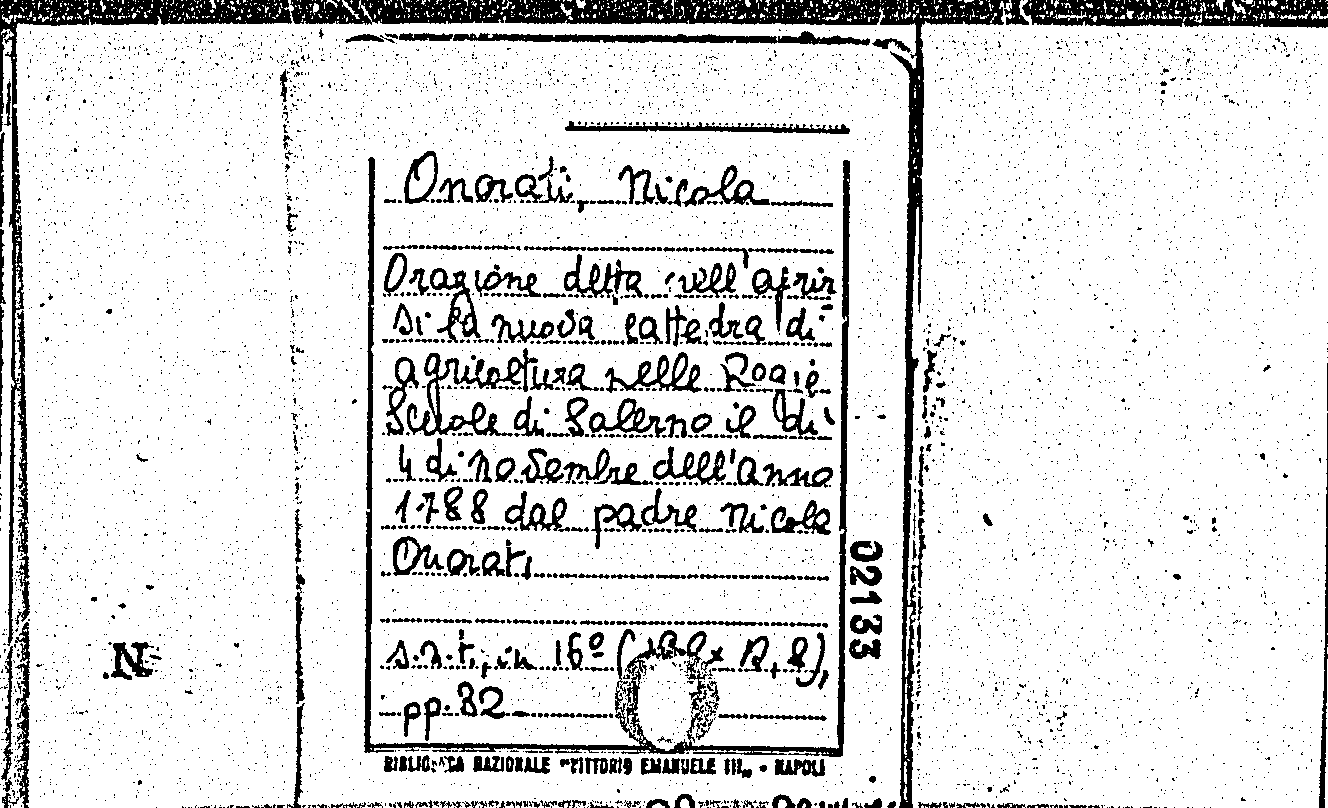 Onorati, Nicola
Orazione detta nell'aprir
si la nuova cattedra di
agricoltura nelle Regie
Scuole di Salerno il dì
4 di novembre dell'anno
1788 dal padre Nicola
Onorati
s.n.t., in 16º
pp. 32
BIBLIOTECA NAZIONALE "VITTORIO EMANUELE III" - NAPOLI
02133
N